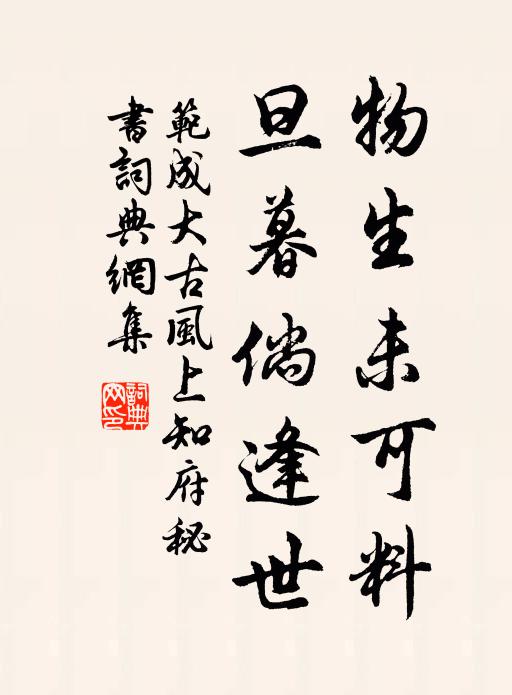 物生未可料
旦暮倘逢世
範成大古風上知府秘
書詞典網集
詞典
网印